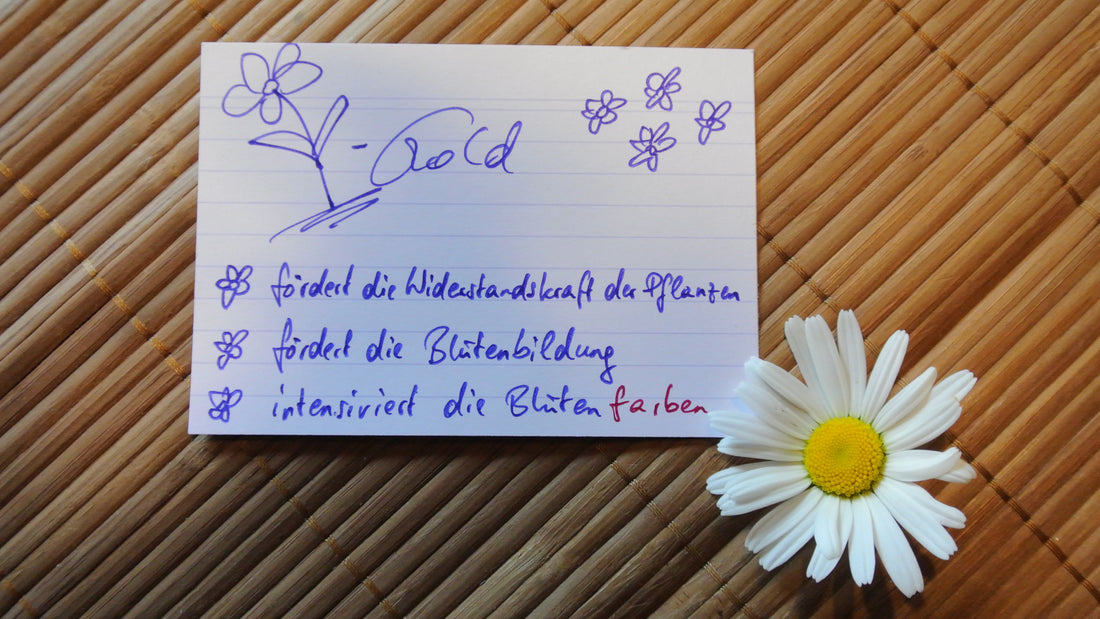 -Gold
fördert die Widerstandskraft der Pflanzen
fördert die Blütenbildung
intensiviert die Blütenfarben